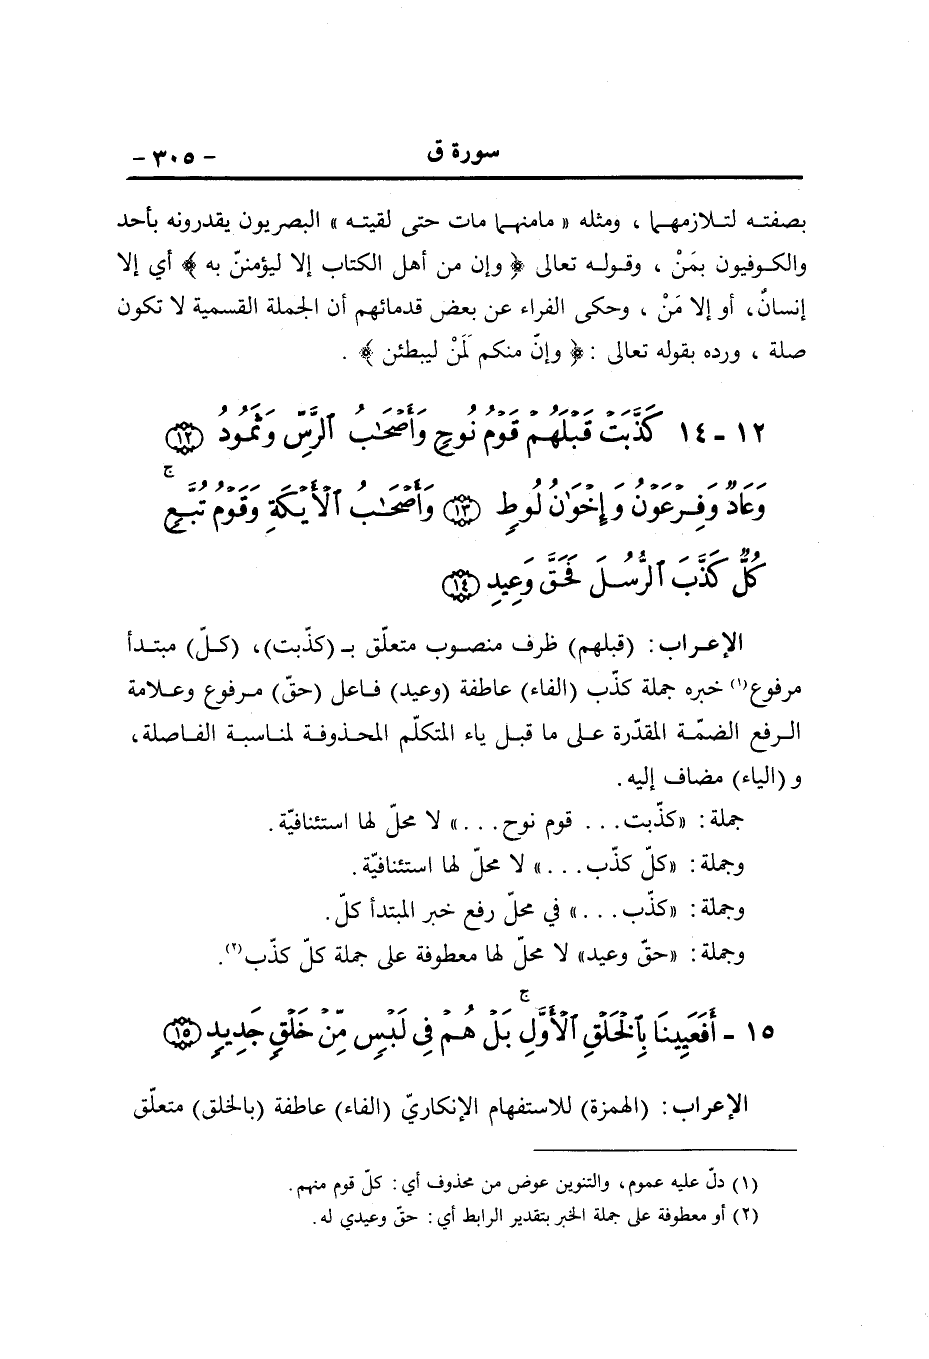 سورة ق - ٣٠٥ -
بصفته لتلازمهما ، ومثله « مامنهما مات حتى لقيته » البصريون يقدرونه بأحد
والكوفيون بمَنْ ، وقوله تعالى ﴿ وإن من أهل الكتاب إلا ليؤمننّ به ﴾ أي إلا
إنسانٌ، أو إلا مَنْ ، وحكى الفراء عن بعض قدمائهم أن الجملة القسمية لا تكون
صلة ، ورده بقوله تعالى : ﴿ وإنّ منكم لَمَنْ ليبطئن ﴾ .
١٢ - ١٤ كَذَّبَتْ قَبْلَهُمْ قَوْمُ نُوحٍ وَأَصْحَٰبُ ٱلرَّسِّ وَثَمُودُ ﴿١٢﴾
وَعَادٌ وَفِرْعَوْنُ وَإِخْوَٰنُ لُوطٍ ﴿١٣﴾ وَأَصْحَٰبُ ٱلْأَيْكَةِ وَقَوْمُ تُبَّعٍ ۚ
كُلٌّ كَذَّبَ ٱلرُّسُلَ فَحَقَّ وَعِيدِ ﴿١٤﴾
الإعراب: (قبلهم) ظرف منصوب متعلّق بـ (كذّبت)، (كلّ) مبتدأ
مرفوع(١) خبره جملة كذّب (الفاء) عاطفة (وعيد) فاعل (حقّ) مرفوع وعلامة
الرفع الضمّة المقدّرة على ما قبل ياء المتكلّم المحذوفة لمناسبة الفاصلة،
و (الياء) مضاف إليه.
جملة: «كذّبت... قوم نوح...» لا محلّ لها استئنافيّة.
وجملة: «كلّ كذّب...» لا محلّ لها استئنافيّة.
وجملة: «كذّب...» في محلّ رفع خبر المبتدأ كلّ.
وجملة: «حقّ وعيد» لا محلّ لها معطوفة على جملة كلّ كذّب(٢).
١٥ - أَفَعَيِينَا بِٱلْخَلْقِ ٱلْأَوَّلِ ۚ بَلْ هُمْ فِي لَبْسٍ مِّنْ خَلْقٍ جَدِيدٍ ﴿١٥﴾
الإعراب: (الهمزة) للاستفهام الإنكاريّ (الفاء) عاطفة (بالخلق) متعلّق
(١) دلّ عليه عموم، والتنوين عوض من محذوف أي: كلّ قوم منهم.
(٢) أو معطوفة على جملة الخبر بتقدير الرابط أي: حقّ وعيدي له.